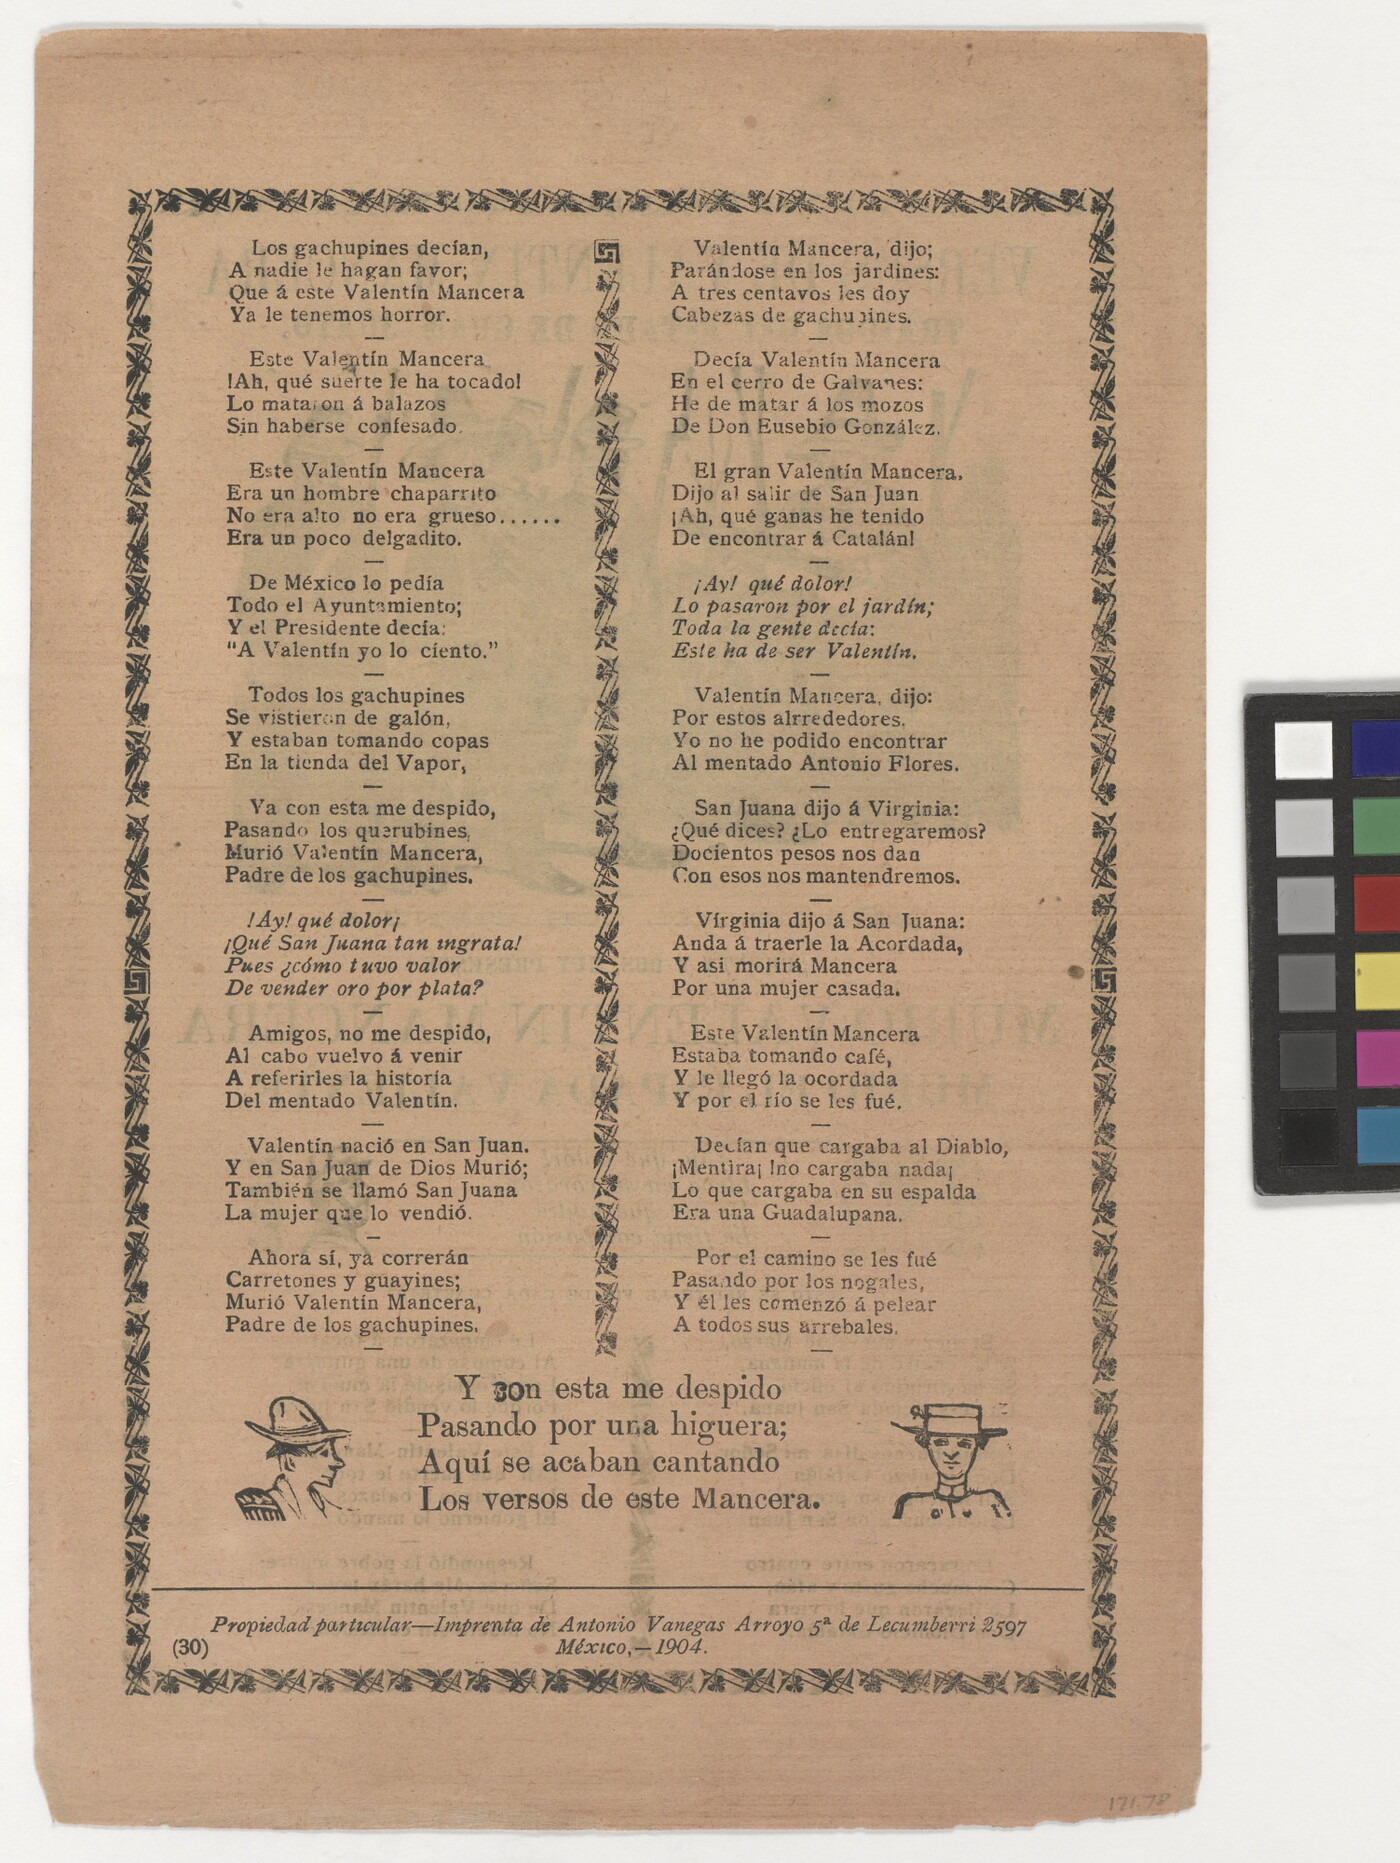 Los gachupines decían,
A nadie le hagan favor;
Que á este Valentín Mancera
Ya le tenemos horror.
—
Este Valentín Mancera
!Ah, qué suerte le ha tocado!
Lo mataron á balazos
Sin haberse confesado.
—
Este Valentín Mancera
Era un hombre chaparrito
No era alto no era grueso......
Era un poco delgadito.
—
De México lo pedía
Todo el Ayuntamiento;
Y el Presidente decía:
"A Valentín yo lo ciento."
—
Todos los gachupines
Se vistieron de galón,
Y estaban tomando copas
En la tienda del Vapor,
—
Ya con esta me despido,
Pasando los querubines,
Murió Valentín Mancera,
Padre de los gachupines.
—
!Ay! qué dolor¡
¡Qué San Juana tan ingrata!
Pues ¿cómo tuvo valor
De vender oro por plata?
—
Amigos, no me despido,
Al cabo vuelvo á venir
A referirles la historía
Del mentado Valentín.
—
Valentín nació en San Juan.
Y en San Juan de Dios Murió;
También se llamó San Juana
La mujer que lo vendió.
—
Ahora sí, ya correrán
Carretones y guayines;
Murió Valentín Mancera,
Padre de los gachupines.
—
Valentín Mancera, dijo;
Parándose en los jardines:
A tres centavos les doy
Cabezas de gachupines.
—
Decía Valentín Mancera
En el cerro de Galvanes:
He de matar á los mozos
De Don Eusebio González.
—
El gran Valentín Mancera,
Dijo al salir de San Juan
¡Ah, qué ganas he tenido
De encontrar á Catalán!
—
¡Ay! qué dolor!
Lo pasaron por el jardín;
Toda la gente decía:
Este ha de ser Valentín.
—
Valentín Mancera, dijo:
Por estos alrrededores,
Yo no he podido encontrar
Al mentado Antonio Flores.
—
San Juana dijo á Virginia:
¿Qué dices? ¿Lo entregaremos?
Docientos pesos nos dan
Con esos nos mantendremos.
—
Vírginia dijo á San Juana:
Anda á traerle la Acordada,
Y asi morirá Mancera
Por una mujer casada.
—
Este Valentín Mancera
Estaba tomando café,
Y le llegó la ocordada
Y por el río se les fué.
—
Decían que cargaba al Diablo,
¡Mentira¡ !no cargaba nada¡
Lo que cargaba en su espalda
Era una Guadalupana.
—
Por el camino se les fué
Pasando por los nogales,
Y él les comenzó á pelear
A todos sus arrebales.
—
Y con esta me despido
Pasando por una higuera;
Aquí se acaban cantando
Los versos de este Mancera.
Propiedad particular—Imprenta de Antonio Vanegas Arroyo 5ª de Lecumberri 2597
(30) México,—1904.
171.78